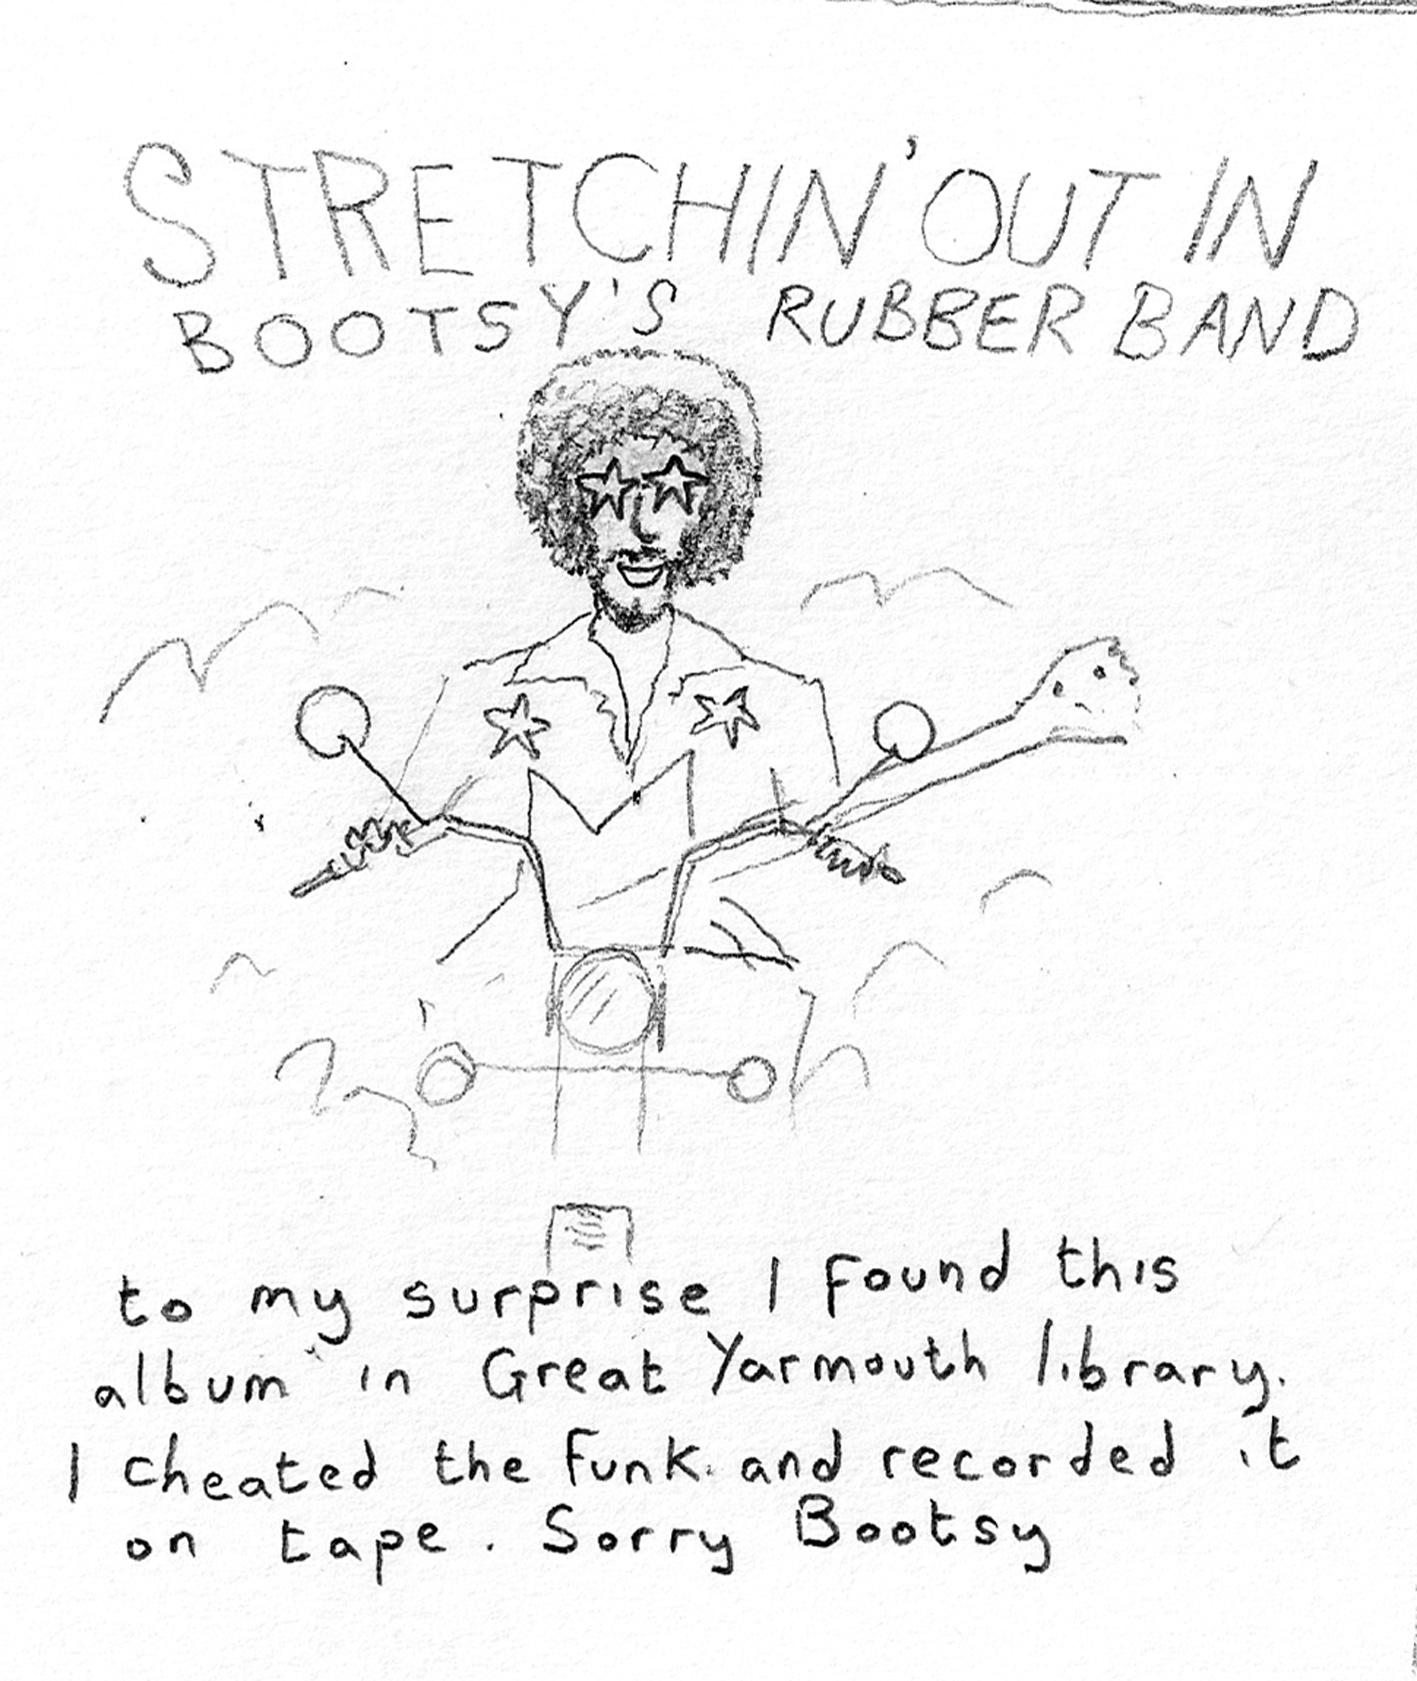 STRETCHIN' OUT IN
BOOTSY'S RUBBER BAND
to my surprise I found this
album in Great Yarmouth library.
I cheated the funk and recorded it
on tape. Sorry Bootsy